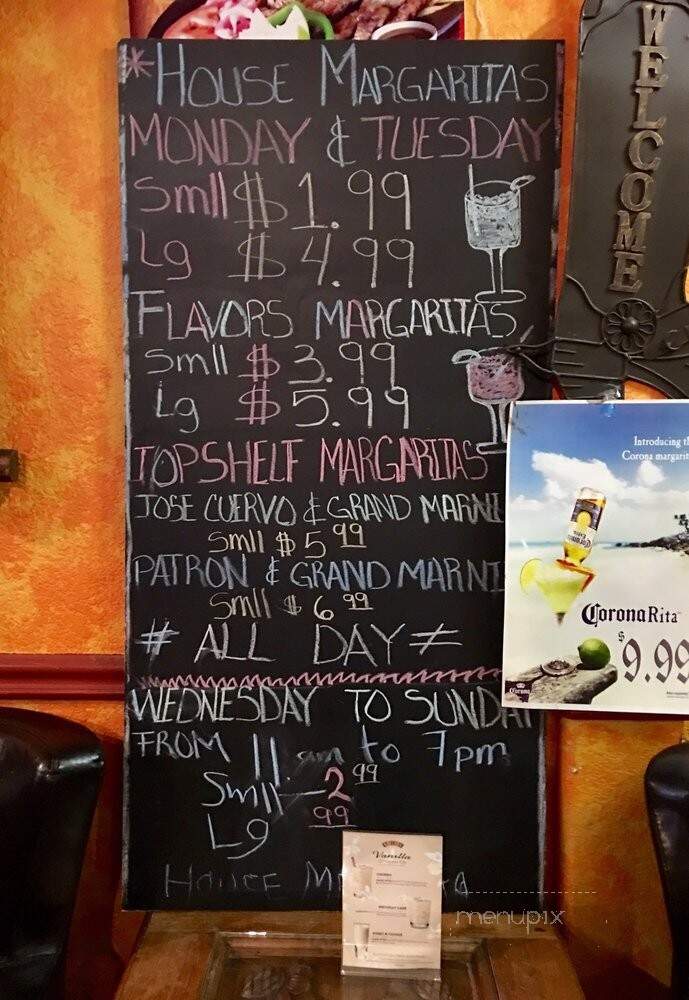 *HOUSE MARGARITAS
MONDAY & TUESDAY
Smll $ 1.99
Lg $ 4.99
FLAVORS MARGARITAS
Smll $ 3.99
Lg $ 5.99
TOPSHELF MARGARITAS
JOSE CUERVO & GRAND MARNI
Smll $ 5 99
PATRON & GRAND MARNI
Smll $ 6 99
# ALL DAY #
WEDNESDAY TO SUNDAY
FROM 11 am to 7pm
Smll – 2 99
Lg 99
HOUSE
WELCOME
Introducing th
Corona margarit
CoronaRita™
$9.99
Corona
Vanilla
menupix